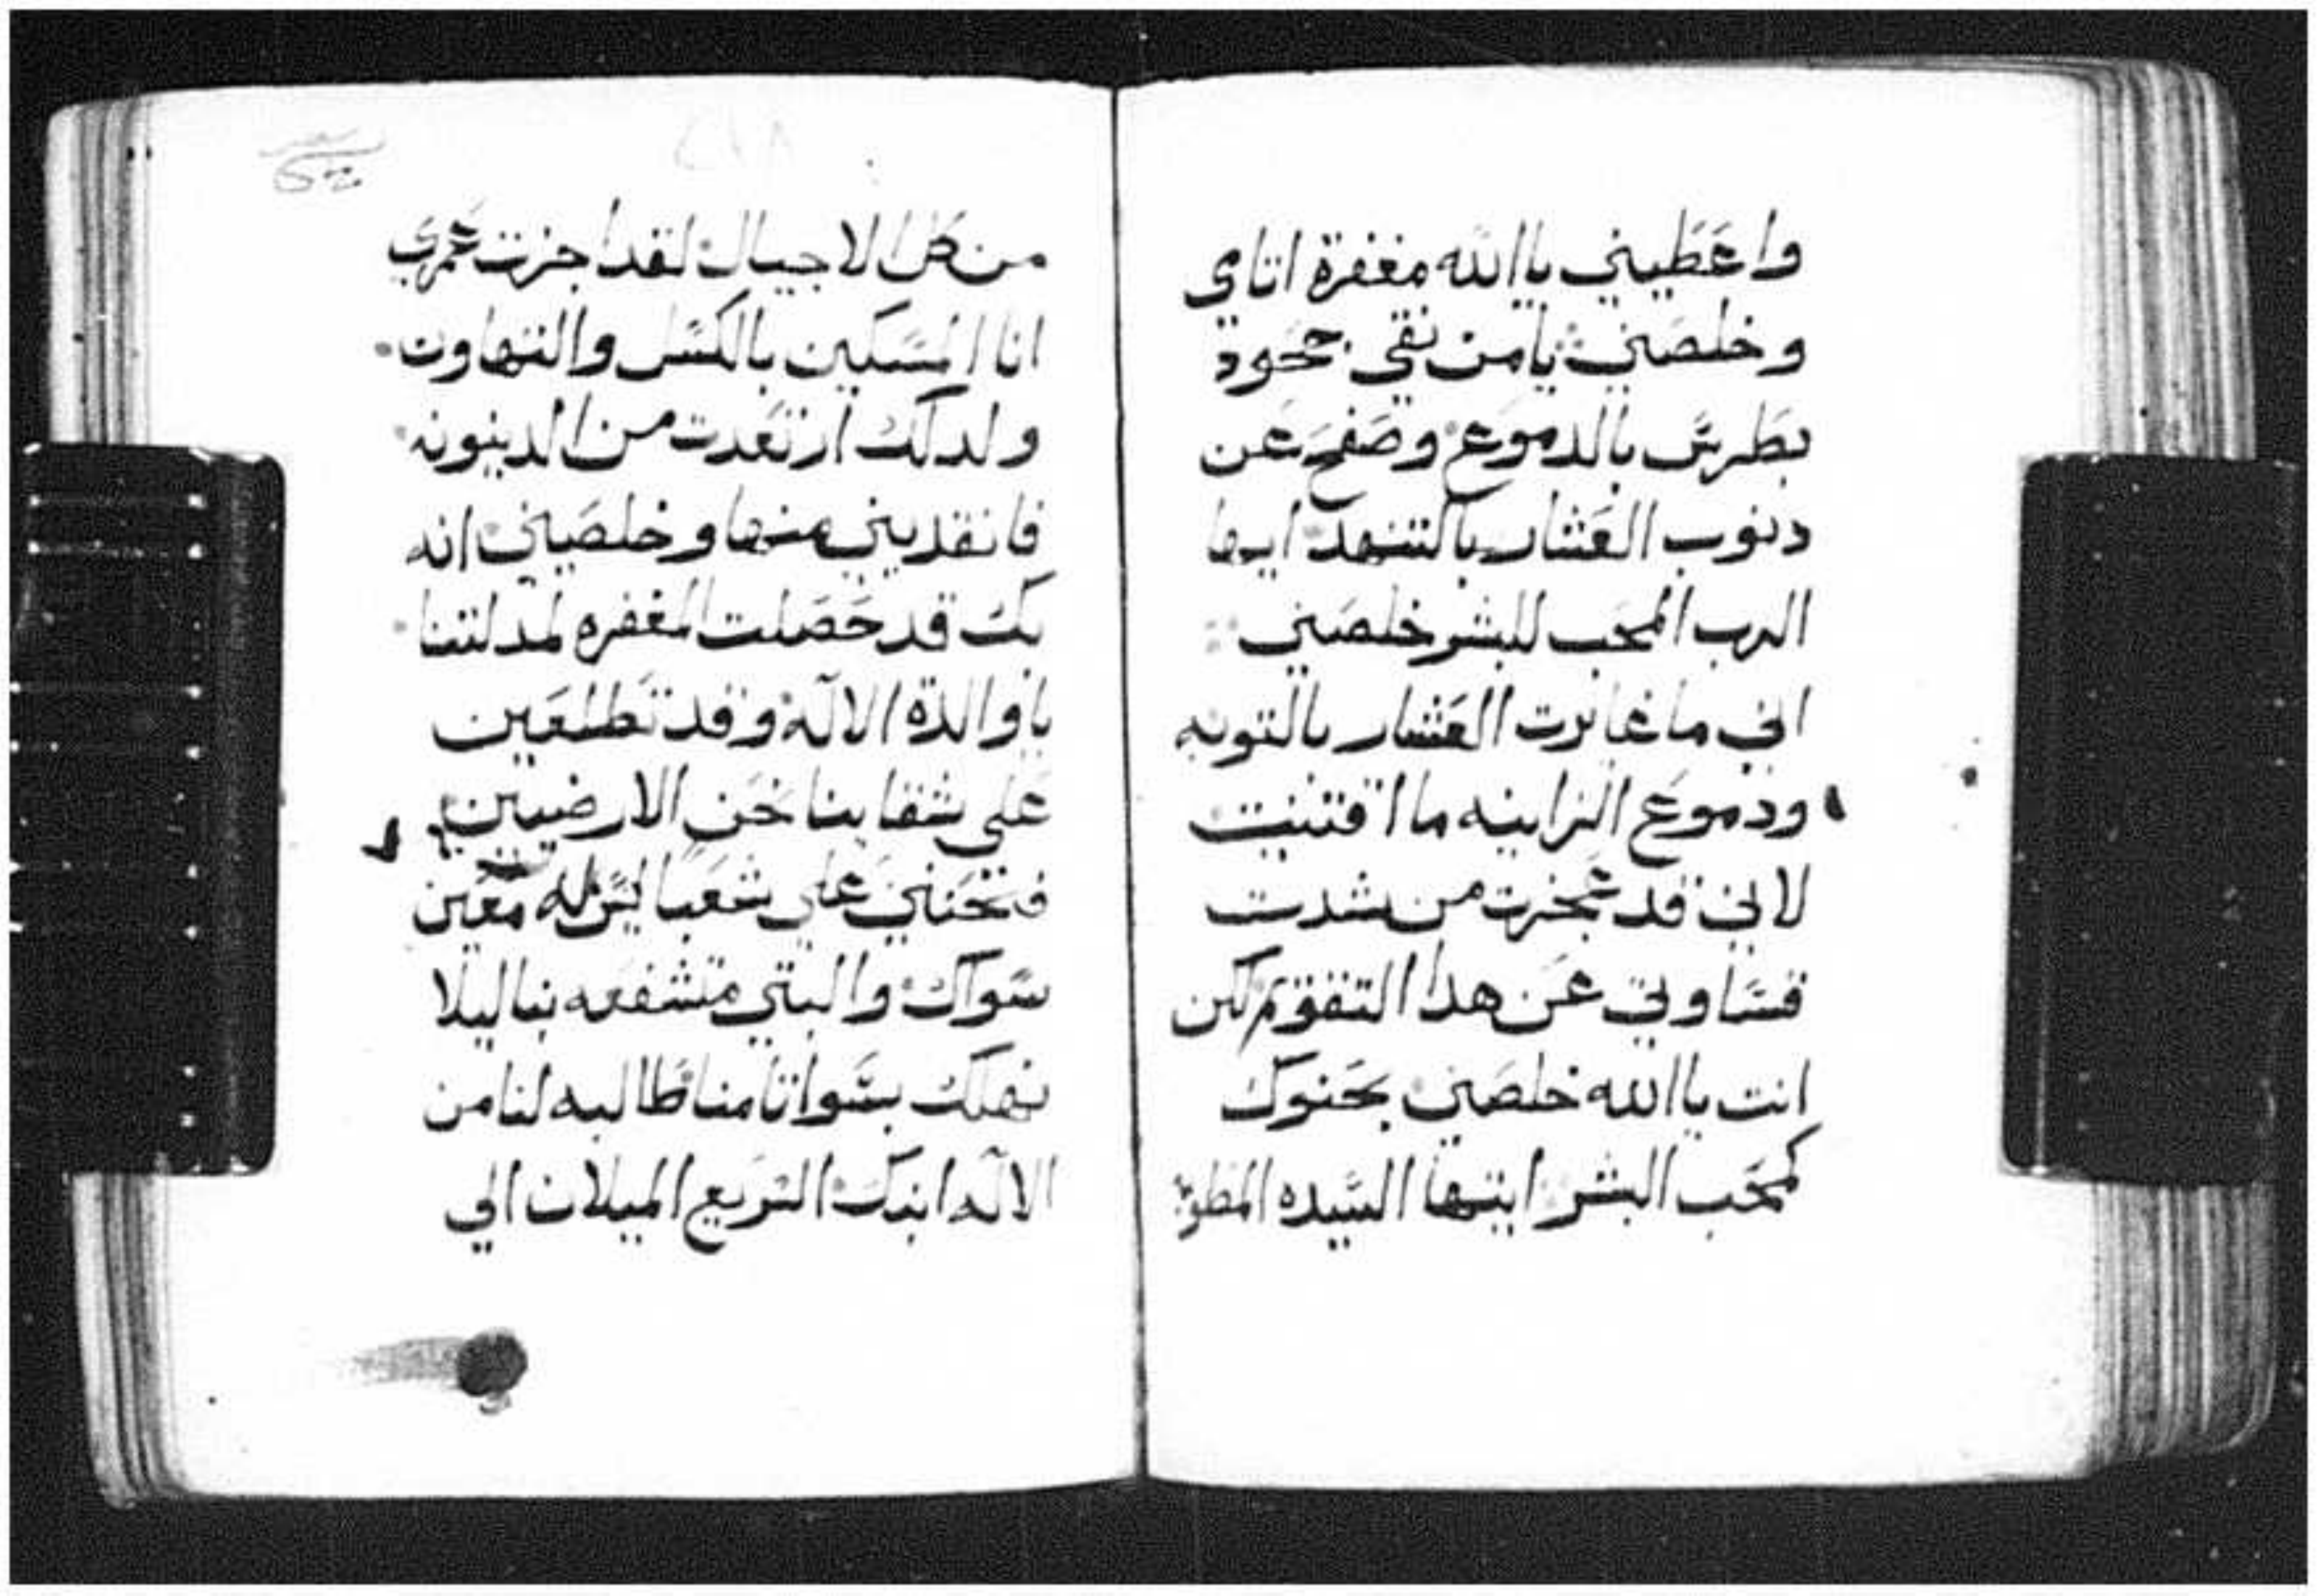 واعطيني ياالله مغفرة اتامي
وخلصني يامن نقي جحود
بطرس بالدموع وصفح عن
دنوب العشار بالتنهد ايها
الرب المحب للبشر خلصني
اني ما غايرت العشار بالتوبه
ودموع الزانيه ما اقتنيت
لاني قد عجزت من شدت
قساوتي عن هدا التقوم لكن
انت ياالله خلصني بحنوك
كمحب البشر ايتها السيده المطوبه
من كل الاجيال لقد اجزت عمري
انا المسكين بالكسل والتهاون
ولدلك ارتعدت من الدينونه
فانقديني منها وخلصيني انه
بك قد حصلت المغفره لمدلتنا
ياوالدة الاله وقد تطلعين
على شقاينا نحن الارضيين
فتحنني على شعبا ليس له معين
سواك والبتي متشفعه بنا ليلا
نهلك بسواتامنا طالبه لنا من
الاله ابنك السريع الميلان الي